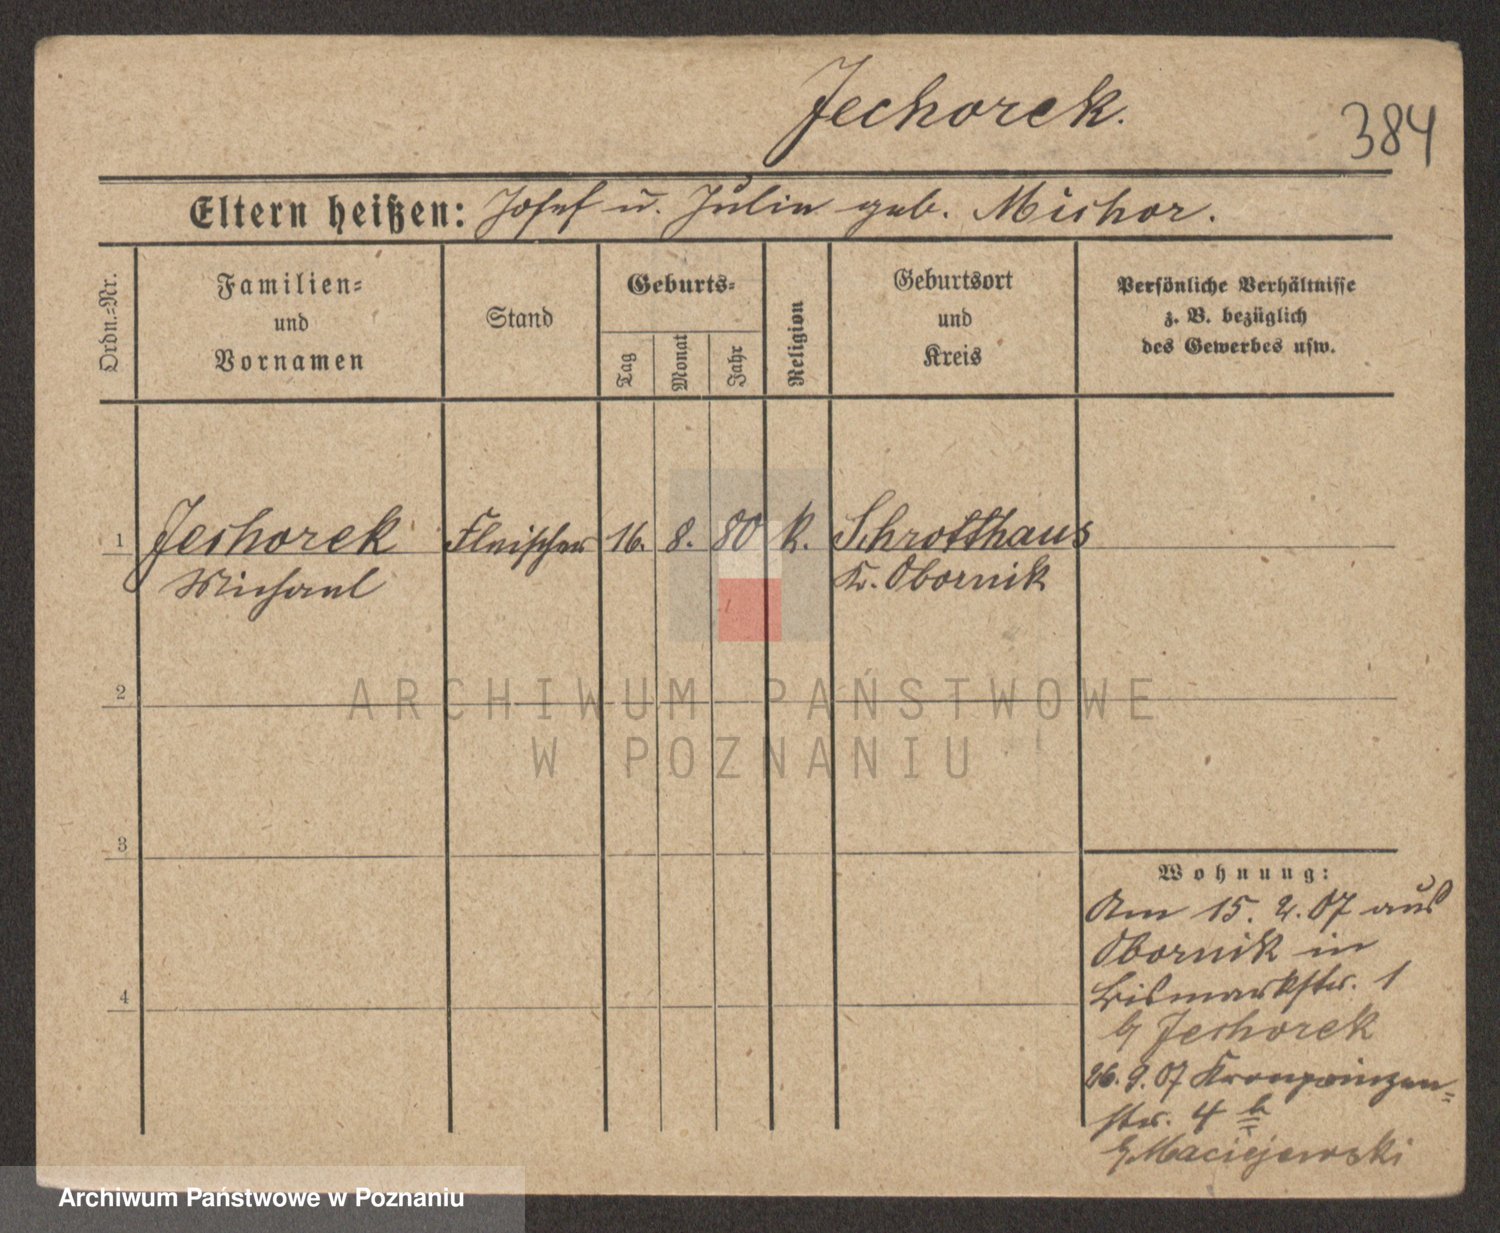 Jechorek.
384
Eltern heißen: Josef u. Julia geb. Michor.
Ordn.-Nr.
Familien-
und
Vornamen
Stand
Geburts-
Tag
Monat
Jahr
Religion
Geburtsort
und
Kreis
Persönliche Verhältnisse
z. B. bezüglich
des Gewerbes usw.
1 Jechorek Fleischer 16. 8. 80 k. Schrotthaus
Michael Kr. Obornik
2
ARCHIWUM PAŃSTWOWE
W POZNANIU
3
4
Wohnung:
Am 15. 2. 07 aus
Obornik in
Bismarkstr. 1
b/ Jechorek
26. 9. 07 Kronprinzen-
str. 4 b
b/ Maciejewski
Archiwum Państwowe w Poznaniu